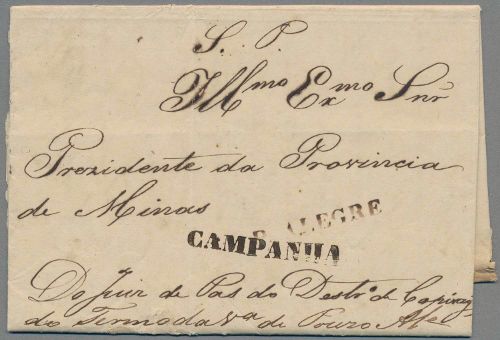 S. P.
Illmo Exmo Snr
Prezidente da Provincia
de Minas
P. ALEGRE
CAMPANHA
Do Juiz de Pas do Destro. de
do Termo da Va de Pouzo Ale